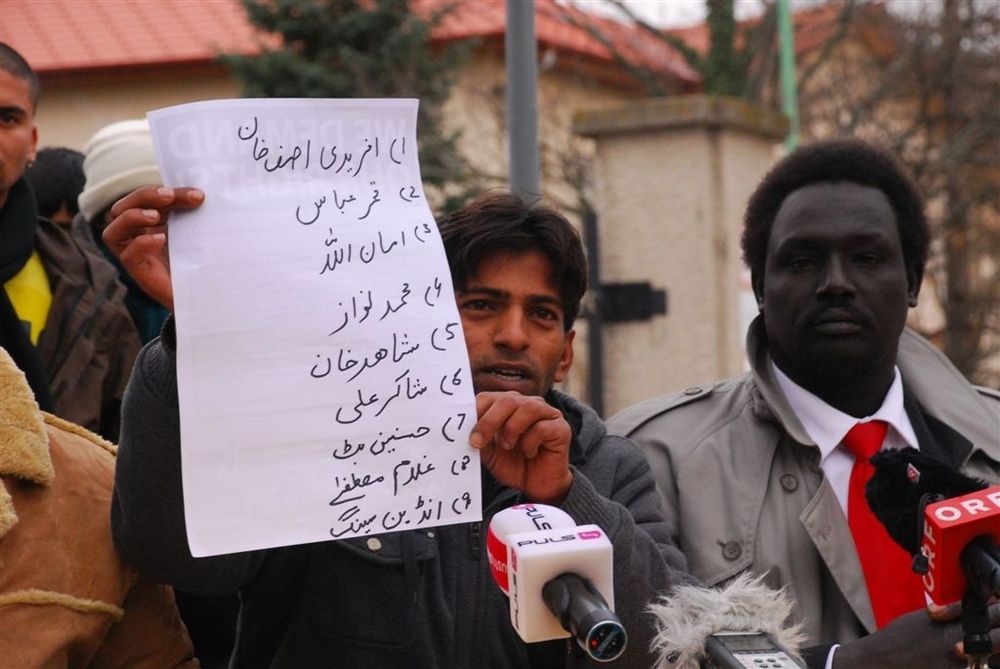 1) افریدی اصف خان
2) قمر عباس
3) امان اللہ
4) محمد نواز
5) شاھد خان
6) شاکر علی
7) حسنین بٹ
8) غلام مصطفے
9) انڈین سینگ
WE DEMAND
PULS
PULS
ORF
ORF